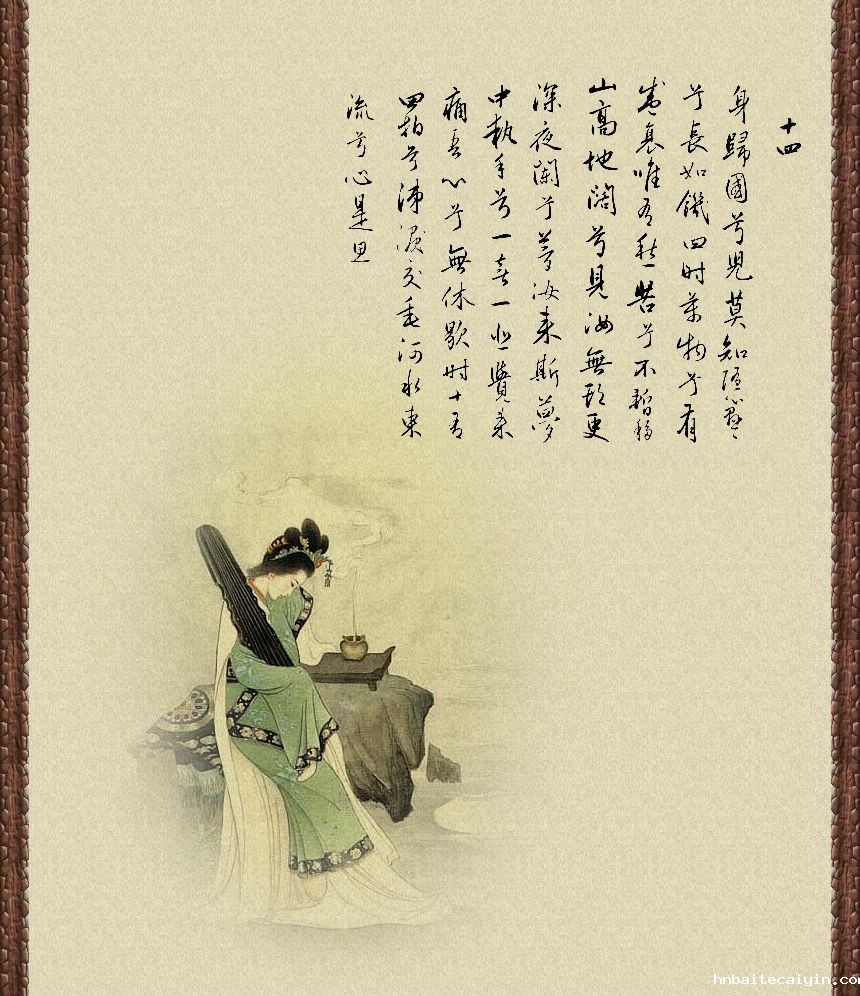 十四
身歸國兮兒莫知隨心懸々
兮長如饑四時萬物兮有
盛衰唯有愁苦兮不暫移
山高地闊兮見汝無期更
深夜闌兮夢汝來斯夢
中執手兮一喜一悲覺來
痛吾心兮無休歇時十有
四拍兮涕淚交垂河水東
流兮心是思
hnbaitecaiyin.com